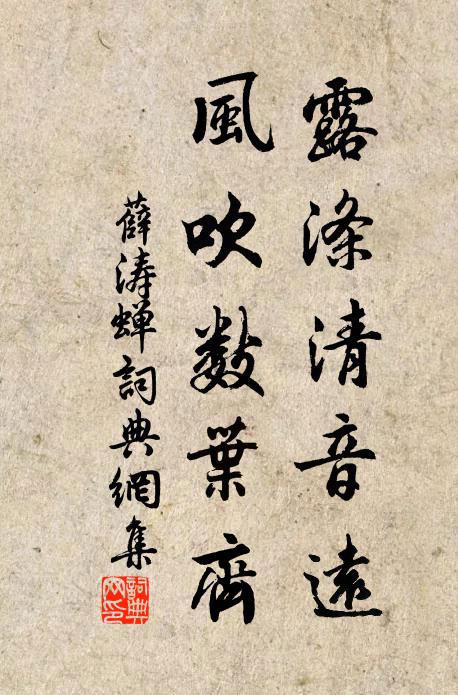 露滌清音遠
風吹數葉齊
薛濤蟬詞典網集
詞典網印